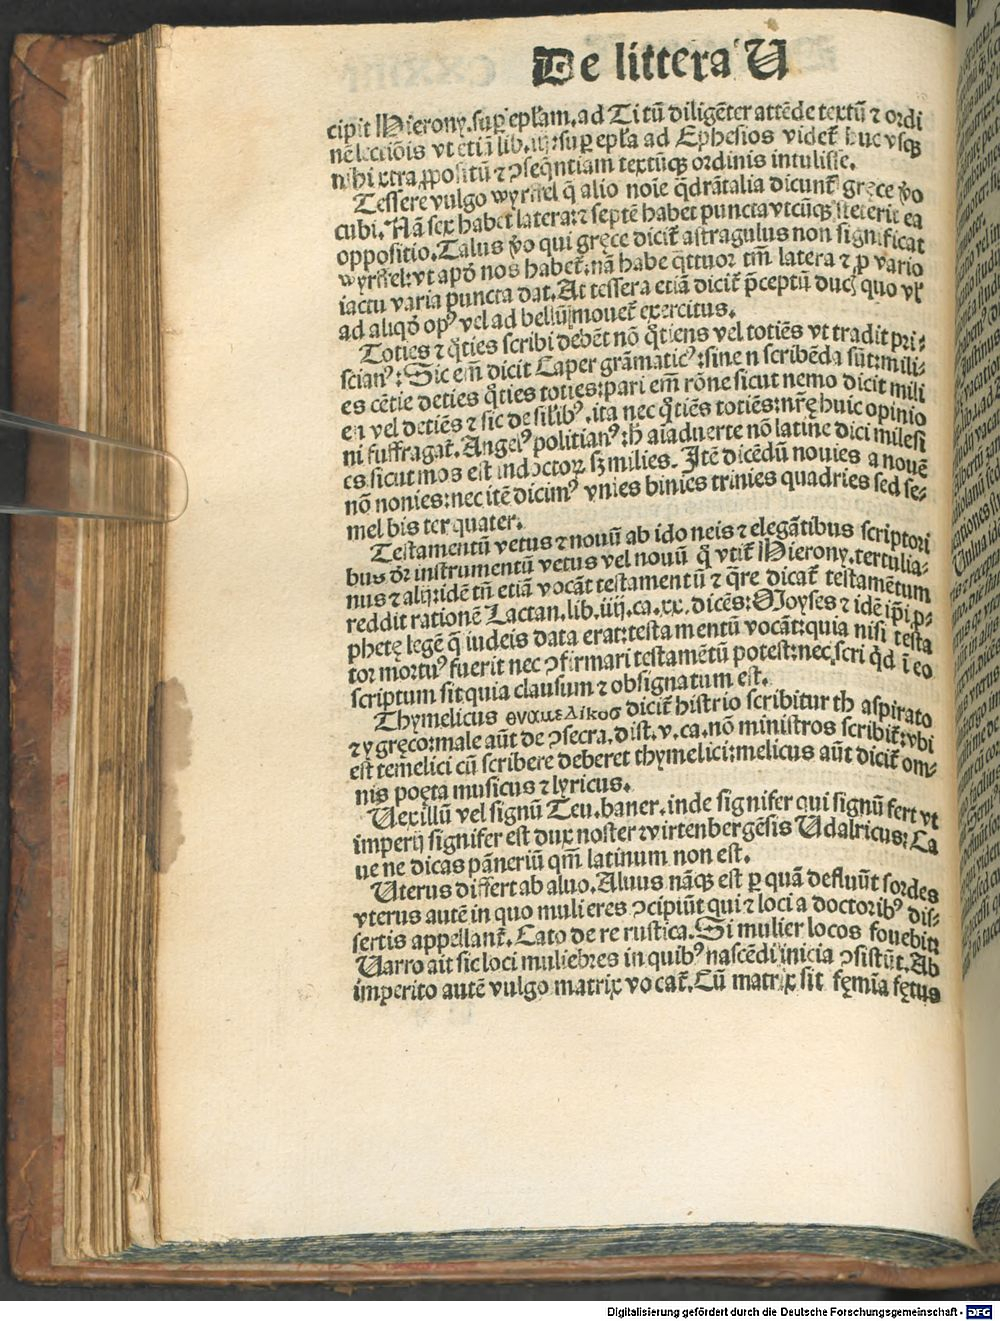 De littera U
cipit Hierony. sup epłam. ad Titū diligēter attēde textū ⁊ ordi
nē lectiōis vt etiā lib. iij: sup epła ad Ephesios videt̄ huc vsqꝫ
nihi extra ꝓpositū ⁊ ꝯseqntiam textūqꝫ ordinis intulisse.
Tessere vulgo wyrffel q̄ alio noīe q̄drātalia dicunt̄ gręce ꝟo
cubi. Nā sex habet latera: ⁊ septē habet puncta vtcūqꝫ steterit ea
oppositio. Talus ꝟo qui gręce dicit̄ astragulus non significat
wyrffel: vt apō nos habet̄. nā habe q̄ttuor tm̄ latera ⁊ ꝑ vario
iactu varia puncta dat. At tessera etiā dicit̄ p̄ceptū ducꝭ quo vł
ad aliqō opꝰ vel ad bellū mouet̄ exercitus.
Toties ⁊ q̄ties scribi debēt nō q̄tiens vel totiēs vt tradit pri⸗
scianꝰ: Sic em̄ dicit Caper grāmaticꝰ: sine n scribēda sūt: mili⸗
es cētie deties q̄ties toties: pari em̄ rōne sicut nemo dicit mili
en vel detiēs ⁊ sic de silibꝰ. ita nec q̄tiēs totiēs: nr̄ę huic opinio
ni suffragat̄. Angelꝰ politianꝰ: h̄ aīaduerte nō latine dici milesi
es sicut mos est indoctoꝝ sꝫ milies. Itē dicēdū nouies a nouē
nō nonies: nec itē dicimꝰ vnies binies trinies quadries sed se⸗
mel bis ter quater.
Testamentū vetus ⁊ nouū ab idoneis ⁊ elegātibus scriptori
bus dr̄ instrumentū vetus vel nouū q̄ vtit̄ Hierony. tertulia⸗
nus ⁊ alij: idē tn̄ etiā vocāt testamentū ⁊ q̄re dicat̄ testamētum
reddit rationē Lactan. lib. iiij. ca. xx. dicēs: Moyses ⁊ idē ip̄i ꝓ⸗
phetę legē q̄ iudeis data erat: testamentū vocāt: quia nisi testa
tor mortuꝰ fuerit nec ꝯfirmari testamētū potest: nec scri q̄d ī eo
scriptum sit quia clausum ⁊ obsignatum est.
Thymelicus θυαμελικοσ dicit̄ histrio scribitur th aspirato
⁊ y gręco: male aūt de ꝯsecra. dist. v. ca. nō ministros scribit̄: vbi
est temelici cū scribere deberet thymelici: melicus aūt dicit̄ om⸗
nis poęta musicus ⁊ lyricus.
Uexillū vel signū Teu. baner. inde signifer qui signū fert vt
imperij signifer est dux noster wirtenbergēsis Udalricus: Ca
ue ne dicas pāneriū qm̄ latinum non est.
Uterus differt ab aluo. Aluus nāqꝫ est ꝑ quā defluūt sordes
vterus autē in quo mulieres ꝯcipiūt qui ⁊ loci a doctoribꝰ dis⸗
sertis appellant̄. Cato de re rustica. Si mulier locos fouebit
Uarro ait sic loci muliebres in quibꝰ nascēdi inicia ꝯsistūt. Ab
imperito autē vulgo matrix vocat̄. Cū matrix sit fęmīa fętus
Digitalisierung gefördert durch die Deutsche Forschungsgemeinschaft - DFG